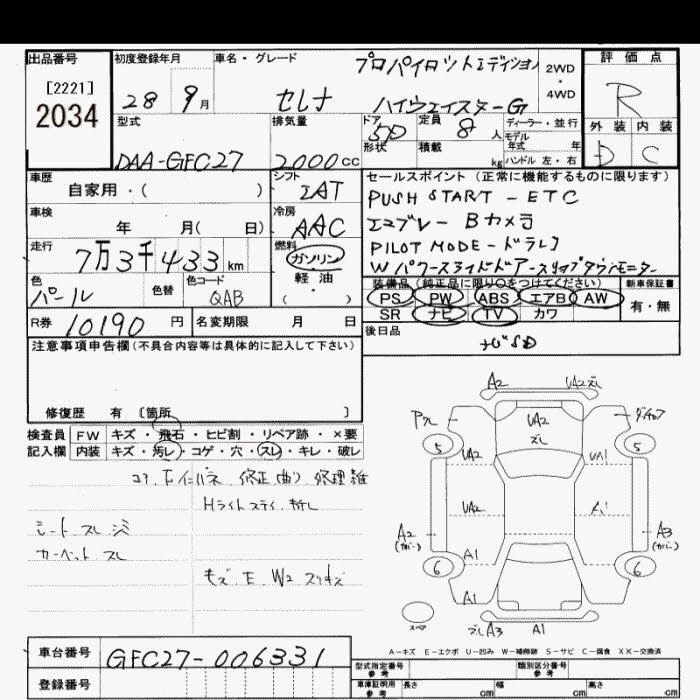 出品番号
[2221]
2034
初度登録年月
28 9月
車名・グレード
プロパイロットエディション
セレナ ハイウェイスターG
2WD
・
4WD
評価点
R
外装 内装
D C
型式
DAA-GFC27
排気量
2000cc
ドア
5D
形状
定員
8人
積載
kg
ディーラー・並行
モデル
年式 年
ハンドル 左・右
車歴
自家用・( )
シフト
IAT
セールスポイント(正常に機能するものに限ります)
PUSH START - ETC
エマブレ - Bカメラ
PILOT MODE - ドラレコ
Wパワースライドドア-スリップダウンモニター
車検
年 月( 日)
冷房
AAC
走行
7万3千433km
燃料
ガソリン
・
軽油
( )
色
パール
色替
色コード
QAB
装備品(純正品に限り○をつけてください)
PS PW ABS エアB AW
SR ナビ TV カワ
新車保証書
有・無
R券
10190円
名変期限 月 日
後日品
ナビSD
注意事項申告欄(不具合内容等は具体的に記入して下さい)
修復歴 有 [箇所 ]
検査員
記入欄
FW キズ・飛石・ヒビ割・リペア跡・×要
内装 キズ・汚レ・コゲ・穴・スレ・キレ・破レ
修正 曲り 修理雑
Hライトステイ 折レ
シート スレ
カーペット スレ
E W2 スリキズ
A2
UA2 ズレ
UA2
ズレ
5
5
UA2
UA1
UA2
A2
(カバー)
A3
(カバー)
A1
6
6
A1
スペア
ズレA3 A1
A-キズ E-エクボ U-凹み W-補修跡 S-サビ C-腐食 XX-交換済
車台番号
GFC27-006331
登録番号
型式指定番号
参考
類別区分番号
参考
車庫証明用
参考
長さ cm
幅 cm
高さ cm